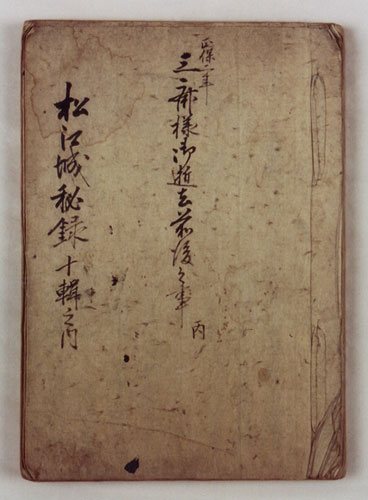 正保二年
三斎様御逝去前後之事 丙
松江城秘録 十輯之内